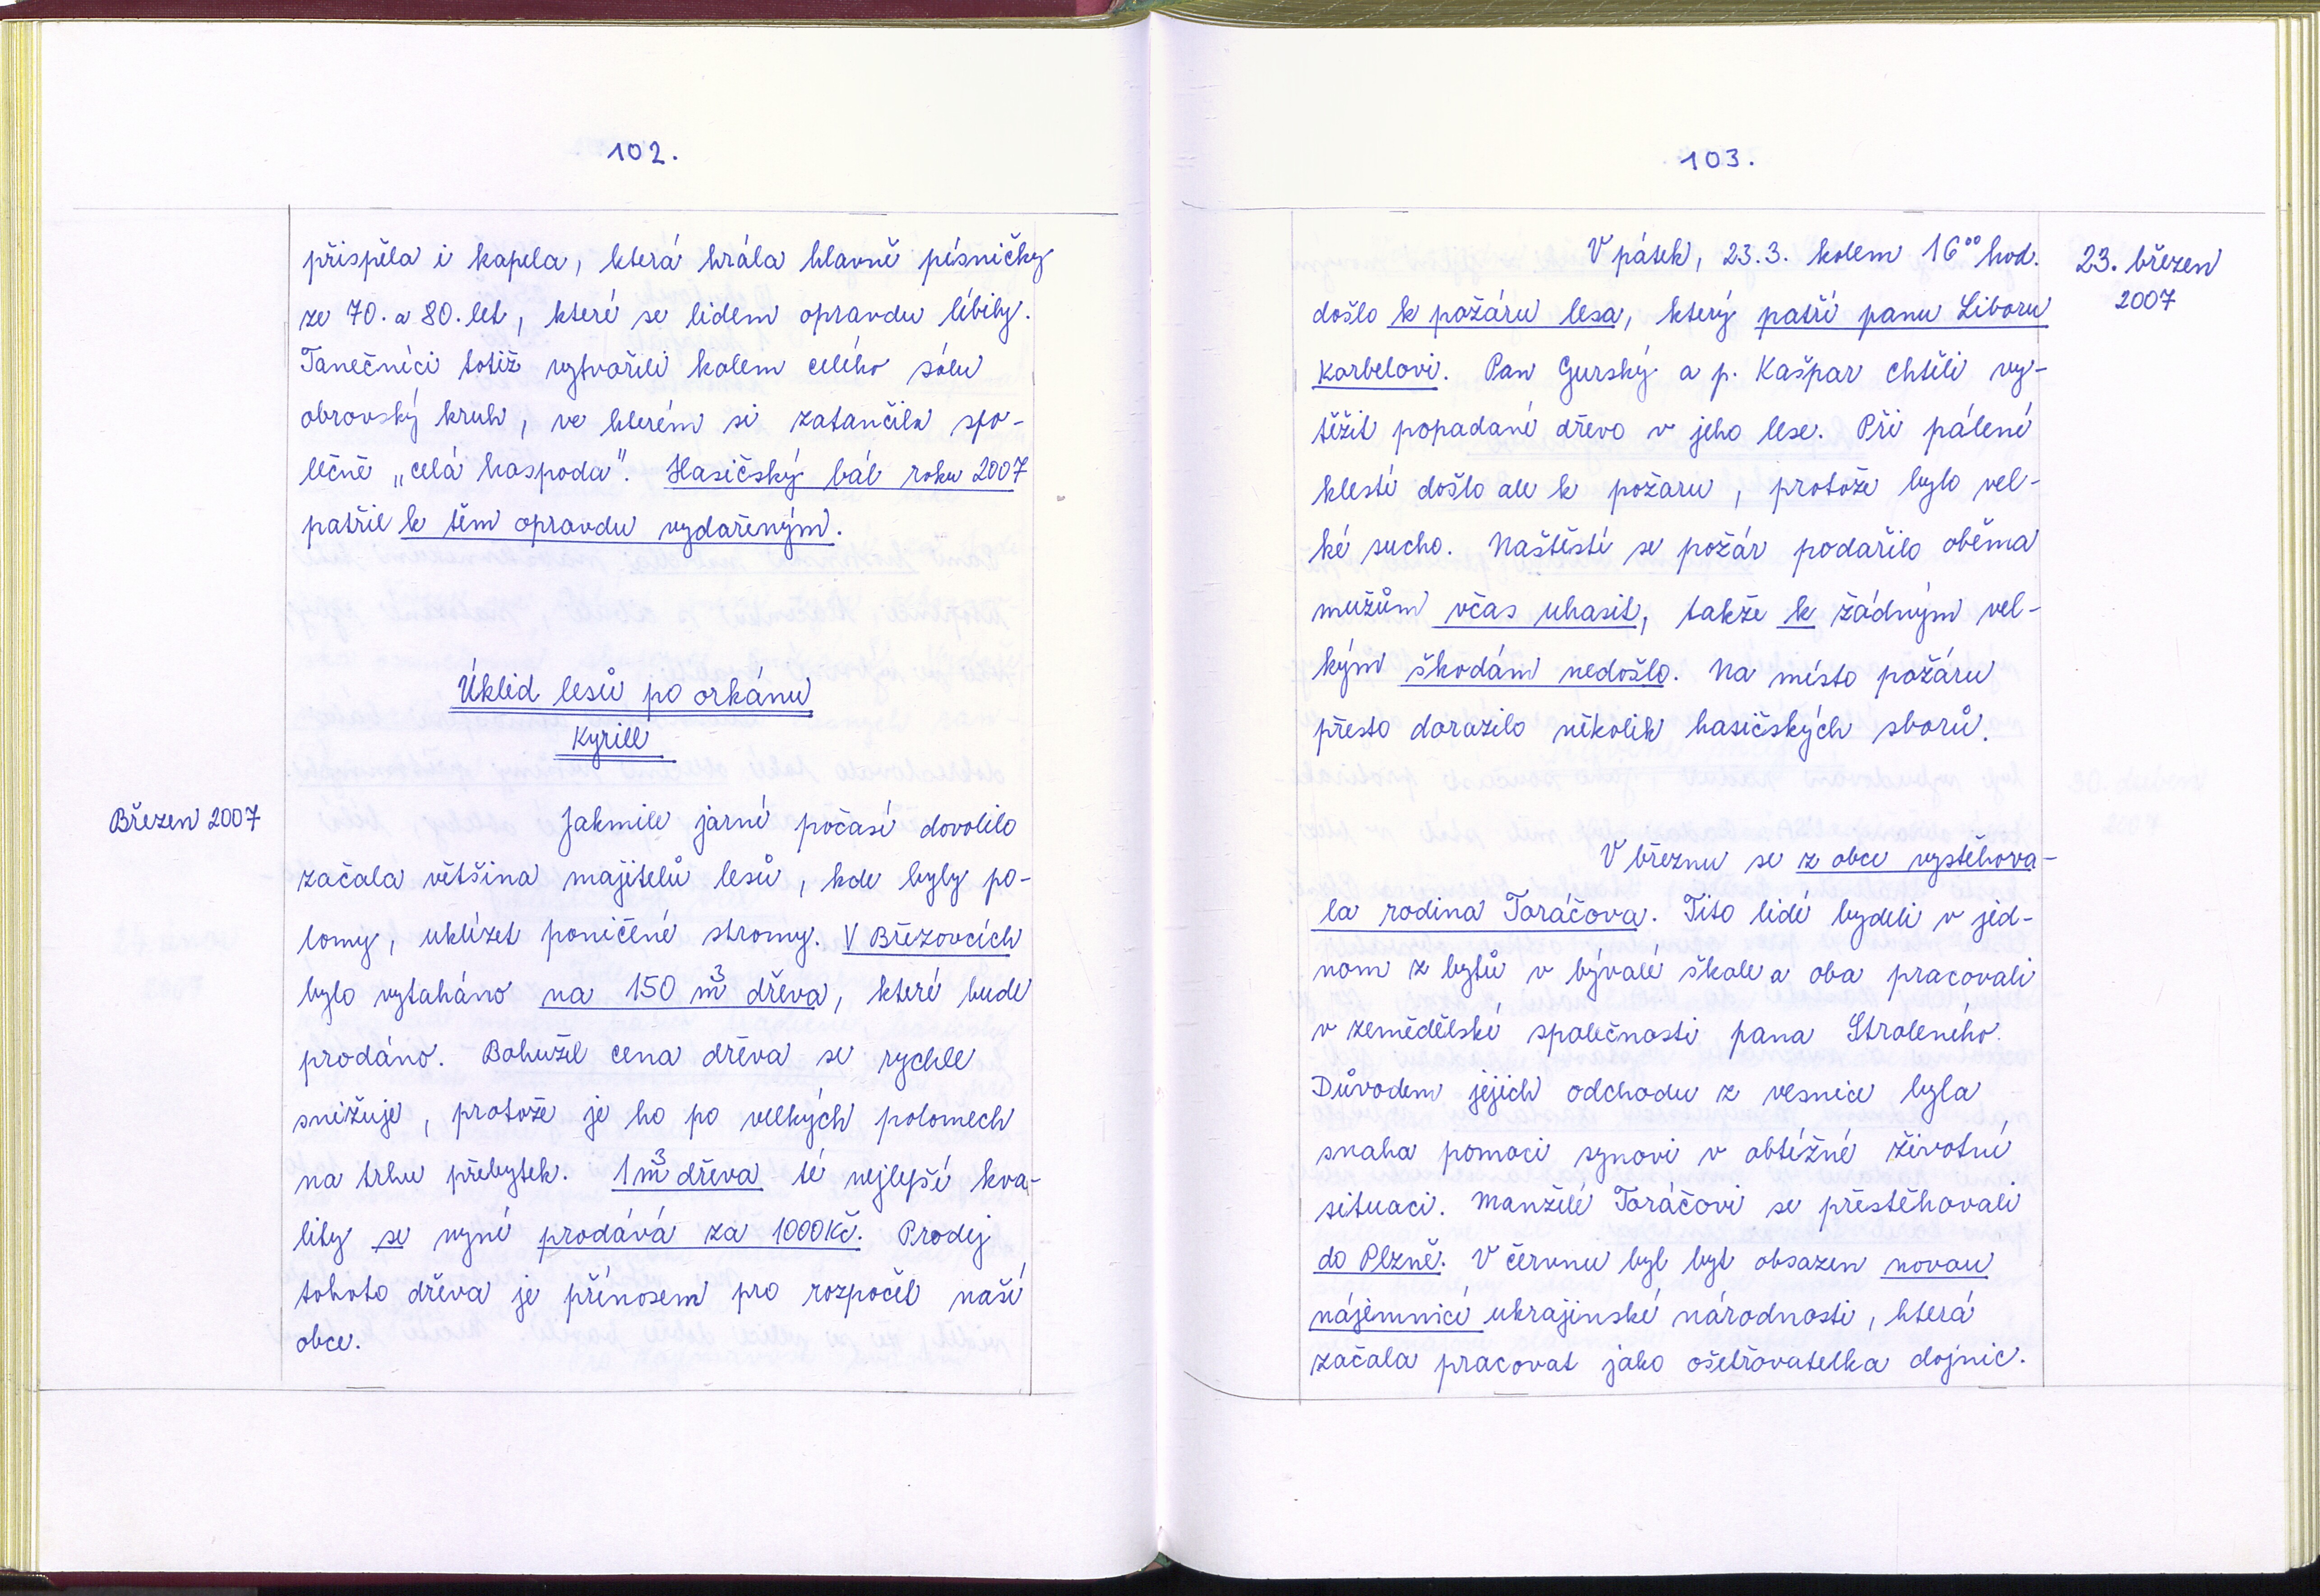 102.
přispěla i kapela, která hrála hlavně písničky
ze 70. a 80. let, které se lidem opravdu líbily.
Tanečníci totiž vytvořili kolem celého sálu
obrovský kruh, ve kterém si zatančila spo-
lečně „celá hospoda". Hasičský bál roku 2007
patřil k těm opravdu vydařeným.
Úklid lesů po orkánu
Kyrill
Březen 2007
Jakmile jarní počasí dovolilo
začala většina majitelů lesů, kde byly po-
lomy, uklízet poničené stromy. V Březovcích
bylo vytaháno na 150 m³ dřeva, které bude
prodáno. Bohužel cena dřeva se rychle
snižuje, protože je ho po velkých polomech
na trhu přebytek. 1m³ dřeva té nejlepší kva-
lity se nyní prodává za 1000Kč. Prodej
tohoto dřeva je přínosem pro rozpočet naší
obce.
103.
23. březen
2007
V pátek, 23.3. kolem 16⁰⁰ hod.
došlo k požáru lesa, který patří panu Liboru
Karbelovi. Pan Gurský a p. Kašpar chtěli vy-
těžit popadané dřevo v jeho lese. Při pálení
klestí došlo ale k požáru, protože bylo vel-
ké sucho. Naštěstí se požár podařilo oběma
mužům včas uhasit, takže k žádným vel-
kým škodám nedošlo. Na místo požáru
přesto dorazilo několik hasičských sborů.
V březnu se z obce vystěhova-
la rodina Toráčova. Tito lidé bydleli v jed-
nom z bytů v bývalé škole a oba pracovali
v zemědělské společnosti pana Stroleného.
Důvodem jejich odchodu z vesnice byla
snaha pomoci synovi v obtížné životní
situaci. Manželé Toráčovi se přestěhovali
do Plzně. V červnu byl byt obsazen novou
nájemnicí ukrajinské národnosti, která
začala pracovat jako ošetřovatelka dojnic.